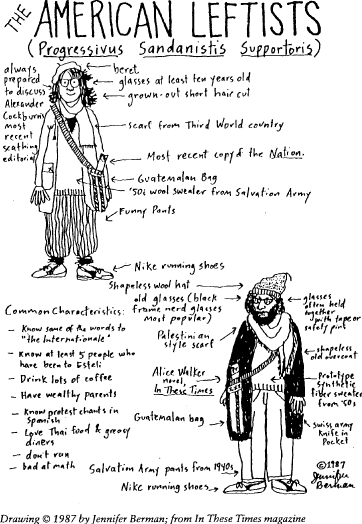 THE AMERICAN LEFTISTS
(Progressivus Sandanistis Supportoris)
always
prepared
to discuss
Alexander
Cockburn's
most
recent
scathing
editorial
beret
glasses at least ten years old
grown-out short hair cut
scarf from Third World country
Most recent copy of the Nation.
Guatemalan Bag
'50s wool sweater from Salvation Army
Funny Pants
Nike running shoes
Shapeless wool hat
old glasses (black
frame nerd glasses
most popular)
Palestinian
style scarf
Alice Walker
novel
In These Times
Guatemalan bag
Salvation Army pants from 1940s
Nike running shoes
glasses
often held
together
with tape or
safety pin
shapeless
old overcoat
Prototype
synthetic
fiber sweater
from '50s
swiss army
Knife in
Pocket
Common Characteristics:
- Know some of the words to
"the Internationale"
- Know at least 5 people who
have been to Esteli
- Drink lots of coffee
- Have wealthy parents
- Know protest chants in
Spanish
- Love Thai food & greasy
diners
- don't run
- bad at math
©1987
Jennifer
Berman
Drawing © 1987 by Jennifer Berman; from In These Times magazine